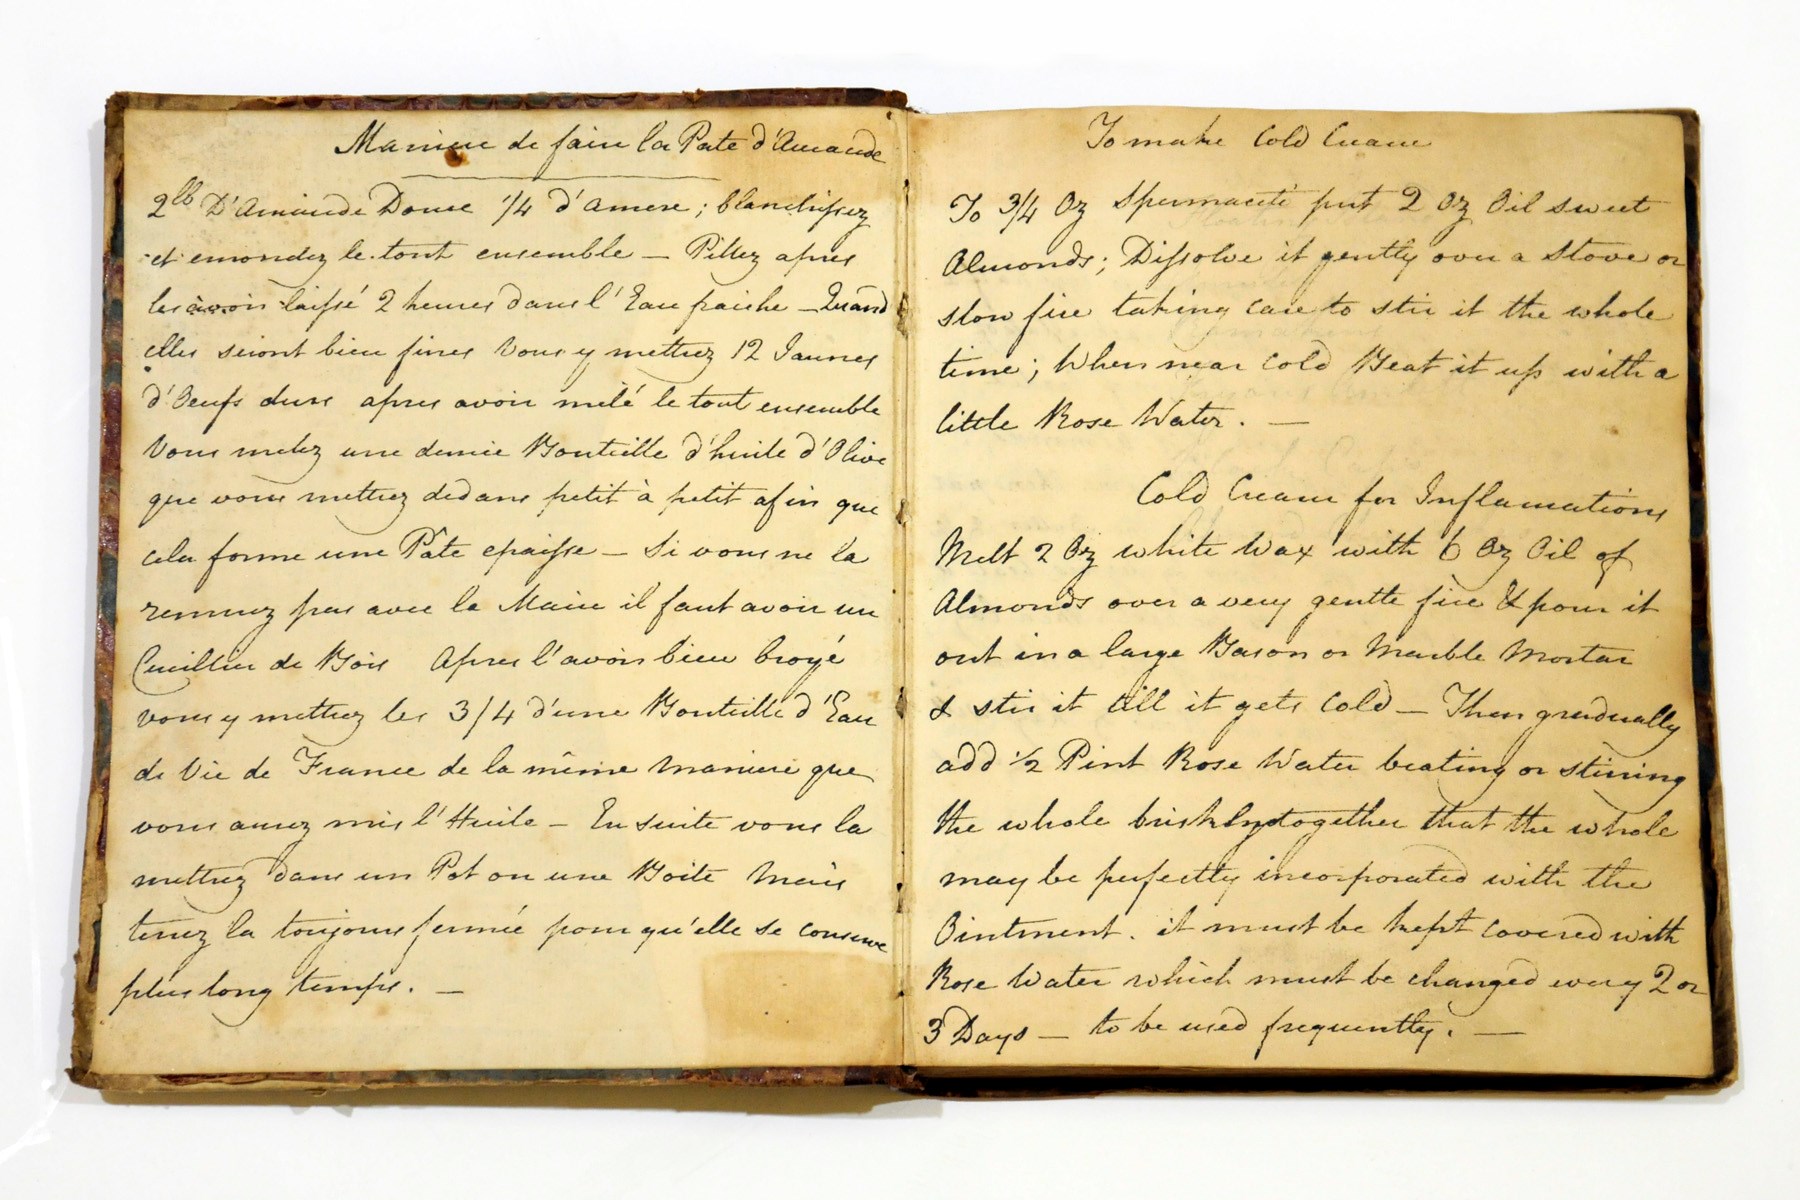 Maniere de faire la Pate d'Amande
2lb D'Amande Douce 1/4 d'amere; blanchissez
et emondez le tout ensemble — Pillez apres
les avoir laissé 2 heures dans l'Eau fraiche — Quand
elles seront bien fines vous y mettrez 12 Jaunes
d'Oeufs durs apres avoir mêlé le tout ensemble
vous metez une demie Bouteille d'huile d'Olive
que vous mettrez dedans petit à petit afin que
cela forme une Pâte epaisse — Si vous ne la
remuez pas avec la Main il faut avoir un
Cueillier de Bois Apres l'avoir bien broyé
vous y mettrez les 3/4 d'une Bouteille d'Eau
de Vie de France de la même maniere que
vous aurez mis l'Huile — En suite vous la
mettrez dans un Pot ou une Boite Mais
tenez la toujours fermée pour qu'elle se conserve
plus long temps. —
To make Cold Cream
To 3/4 Oz Spermaceti put 2 Oz Oil sweet
Almonds; Dissolve it gently over a Stove or
slow fire taking care to stir it the whole
time; When near cold Beat it up with a
little Rose Water. —
Cold Cream for Inflamations
Melt 2 Oz white Wax with 6 Oz Oil of
Almonds over a very gentle fire & pour it
out in a large Bason or Marble Mortar
& stir it till it gets Cold — Then gradually
add 1/2 Pint Rose Water beating or stirring
the whole briskly together that the whole
may be perfectly incorporated with the
Ointment. it must be kept covered with
Rose Water which must be changed every 2 or
3 Days — to be used frequently. —